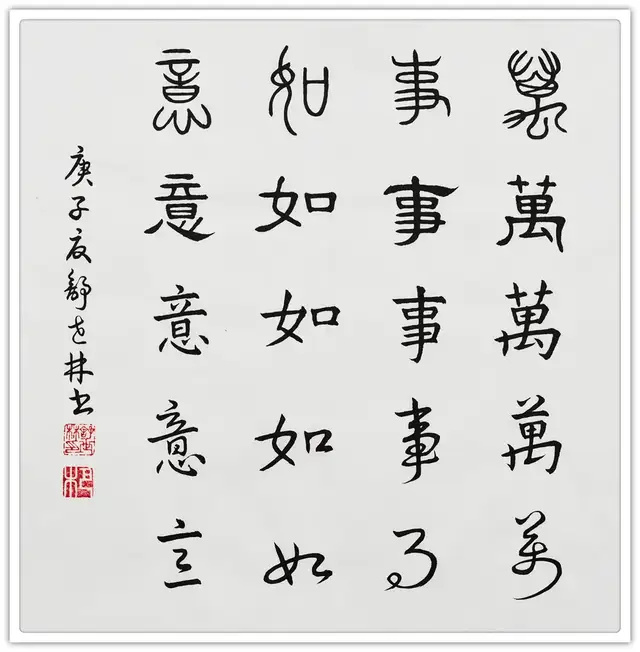 萬萬萬萬萬
事事事事事
如如如如如
意意意意意
庚子夏舒世林书